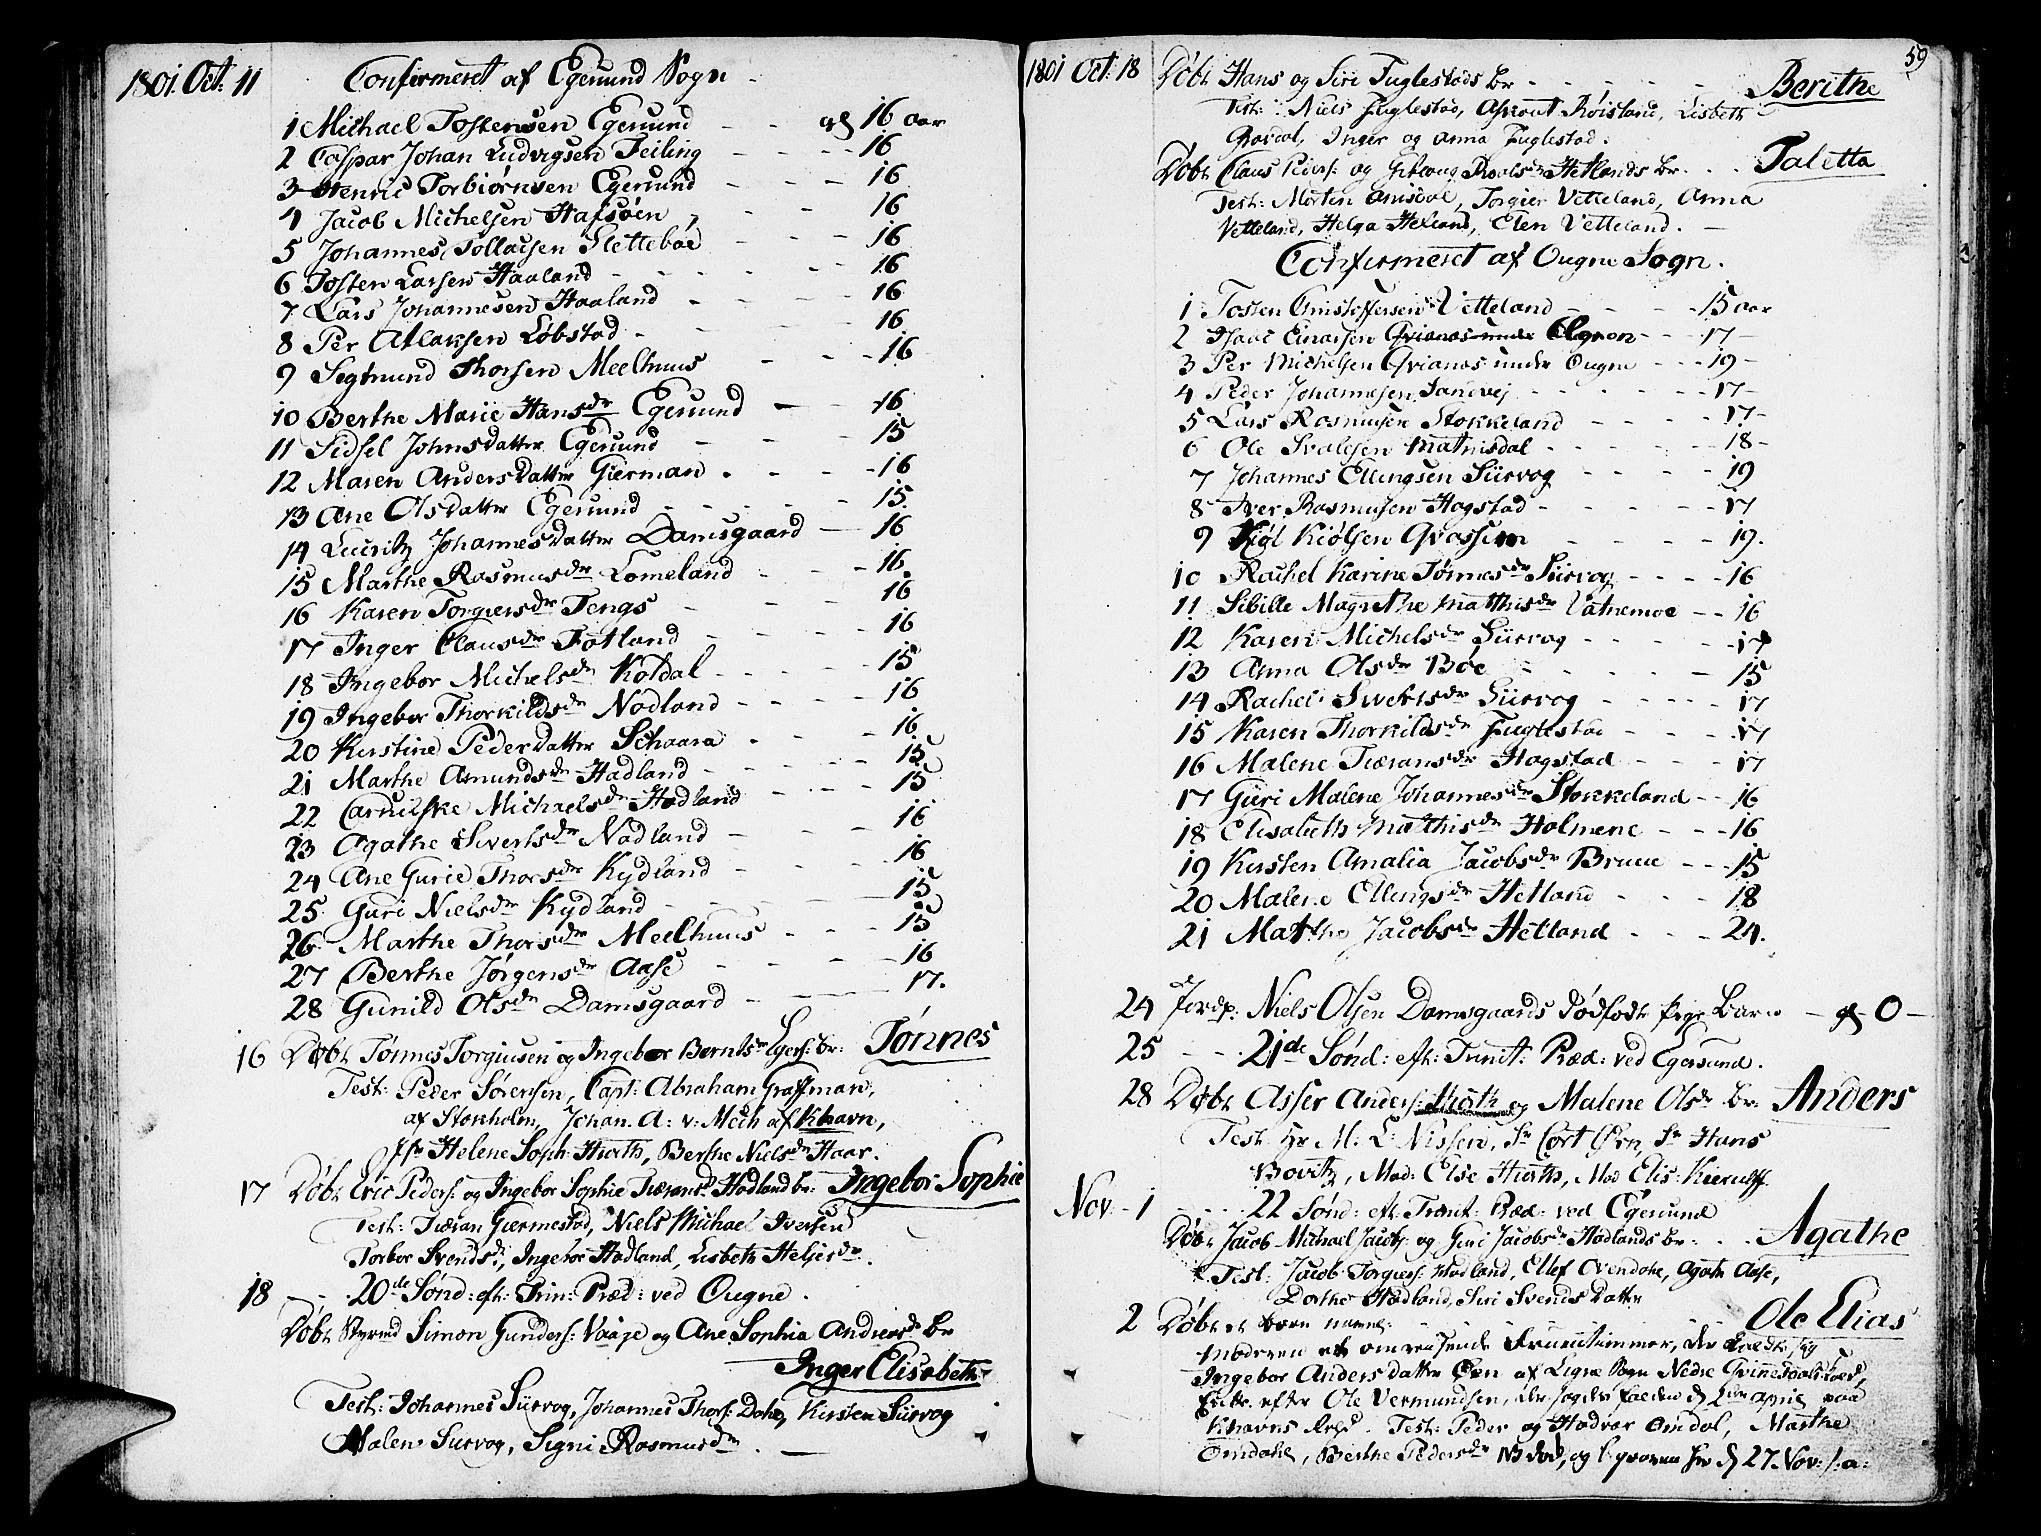 1801. Oct: 11 Confirmeret af Egersund Sogn
1 Michael Tostensen Egersund gl 16 aar
2 Caspar Johan Ludvigsen Feiling 16
3 Henric Torbiørnsen Egersund 16
4 Jacob Michelsen Hafsøen 16
5 Johannes Tollacsen Slettebøe 16
6 Tosten Larsen Haaland 16
7 Lars Johannesen Haaland 16
8 Per Atlaksen Løbstad 16
9 Segmund Thorsen Meelhuus 16
10 Berthe Marie Hansdr Egersund 16
11 Sidsel Johnsdatter Egersund 15
12 Maren Andersdatter Gierman 16
13 Ane Olsdatter Egersund 15
14 Lucritz Johannesdatter Damsgaard 16
15 Marthe Rasmusdr Lomeland 16
16 Karen Torgiersdr Tengs 16
17 Inger Clausdr Fotland 16
18 Ingebor Michelsdr Koldal 15
19 Ingebor Thorkildsdr Nodland 16
20 Kirstine Pederdatter Schaara 16
21 Marthe Amundsdr Hadland 15
22 Michaelsdr Hodland 15
23 Agathe Sivertsdr Nodland 16
24 Ane Gurie Thorsdr Kydland 16
25 Guri Nielsdr Kydland 15
26 Marthe Thorsdr Meelhuus 15
27 Berthe Jørgensdr Aase 16
28 Gunild Olsdr Damsgaard 17.
16 Døbt Tønnes Torgiusen og Ingebor Berntsdr Egers: br: Tønnes
Test: Peder Sørensen, Capt: Abraham Graffman,
af Stokholm, Johan A: v: Mech af Khavn,
Jfr Helene Soph: Hiorth, Berthe Nielsdr Haar.
17 Døbt Eric Peders: og Ingebor Sophie Tiæransd Hodland br: Ingebor Sophie
Test: Tiæran Giermestad, Niels Michael Iversen
Torbor Svendsdr, Ingebor Hodland, Lisbeth Heljesdr.
18 20de Sønd: eft: Trin: Præd: ved Ougne.
Døbt Styrmd Simon Gunders: Vaage og Ane Sophia Andreasdr br
Inger Elisabeth
Test: Johannes Siirvog, Johannes Thors: Dahe, Kirsten Siirvog
Malen Survog, Signi Rasmusdr.
59
1801 Oct: 18 Døbt Hans og Siri Fuglestads br Berithe
Test: Niels Fuglestad, Røisland, Lisbeth
Inger og Anna Fuglestad.
Døbt Claus Peders: og Hetlands br. Taletta
Test: Morten Torgier Vetteland, Anna
Vetteland, Helga Hetland, Elen Vetteland.
Confirmeret af Ougne Sogn.
1 Tosten Christoffersen Vetteland 15 aar
2 Isaac Einarsen 17
3 Per Michelsen Qvianes under Ougne 19
4 Peder Johannesen Sandvej 17
5 Lars Rasmusen Stokkeland 17
6 Ole Svalesen Mathisdal 18
7 Johannes Ellingsen Siirvog 19
8 Iver Rasmusen Hogstad 17
9 Kiøl Kiølsen Qvassem 19.
10 Rachel Karine Tønnesdr Siirvog 16
11 Sibille Magrethe Matthisdr Vatnemoe 16
12 Karen Michelsdr Siirvog 17
13 Anna Olsdr Bøe 15
14 Rachel Sivertsdr Siirvog 17
15 Karen Thorkildsdr Fuglestad 17
16 Malene Tiæransdr Hogstad 17
17 Guri Malene Johannesdr Stokkeland 16
18 Elisabeth Matthisdr Holmene 16
19 Kirsten Amalia Jacobsdr Bruue 15
20 Malene Ellingsdr Hetland 18
21 Marthe Jacobsdr Hetland 24.
24 Jordp: Niels Olsen Damsgaards Dødfødt Pige Barn gl 0
25 21de Sønd: eft: Trinit: Præd: ved Egersund.
28 Døbt Asser Anders: Hiorth og Malene Olsdr br: Anders
Test: Hr M: L: Nissen, Sr Cort Øen, Sr Hans
Bovitz, Mad: Else Hiorth, Mad Elis: Kierulff
Nov: 1 22 Sønd: eft: Trinit: Præd: ved Egersund
Døbt Jacob Michael Jacobs: og Guri Jacobsdr Hodlands br: Agathe
Test: Jacob Torgiers: Hodland, Ellef Ovendahe, Agathe Aase,
Dorthe Hodland, Siri Svends Datter
2 Døbt et barn navnl: Ole Elias
Moderen et omreisende Fruentimmer, der kaldte sig
Ingebor Anders datter Øen af Sogn Nedre
efter Ole Vermundsen, der faderen d 2den April paa
Khavns Test: Peder og Hodvor Omdal, Marthe
Omdahl, Berthe Pedersdr NB død, og begraven her d 27 Nov: s: a: